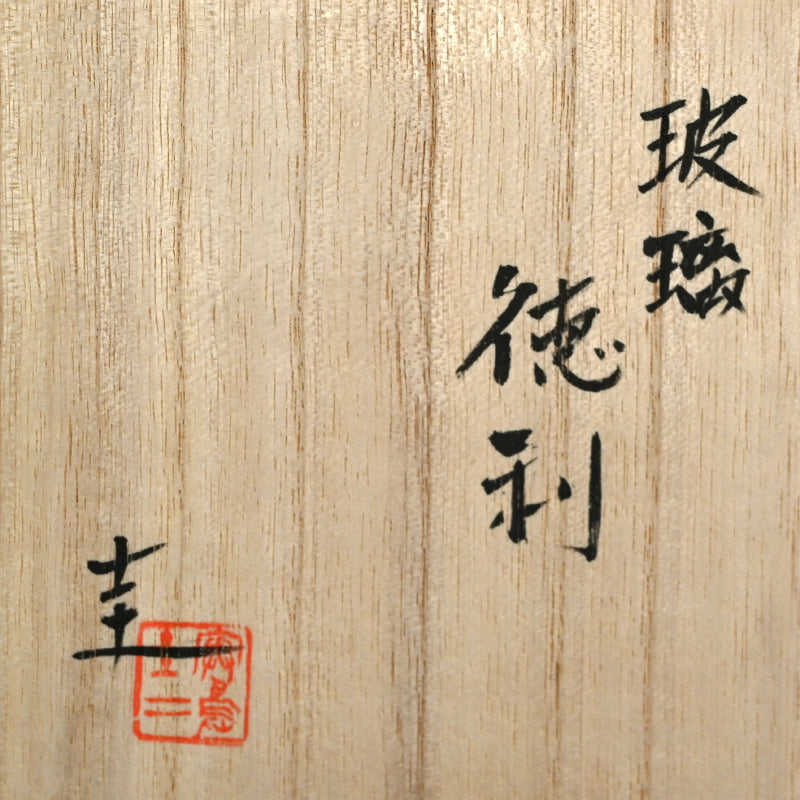 玻璃
徳利
圭